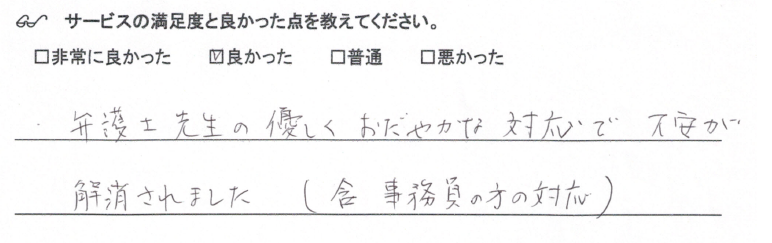 サービスの満足度と良かった点を教えてください。
□非常に良かった ☑良かった □普通 □悪かった
・弁護士先生の優しくおだやかな対応で不安が
解消されました (含 事務員の方の対応)